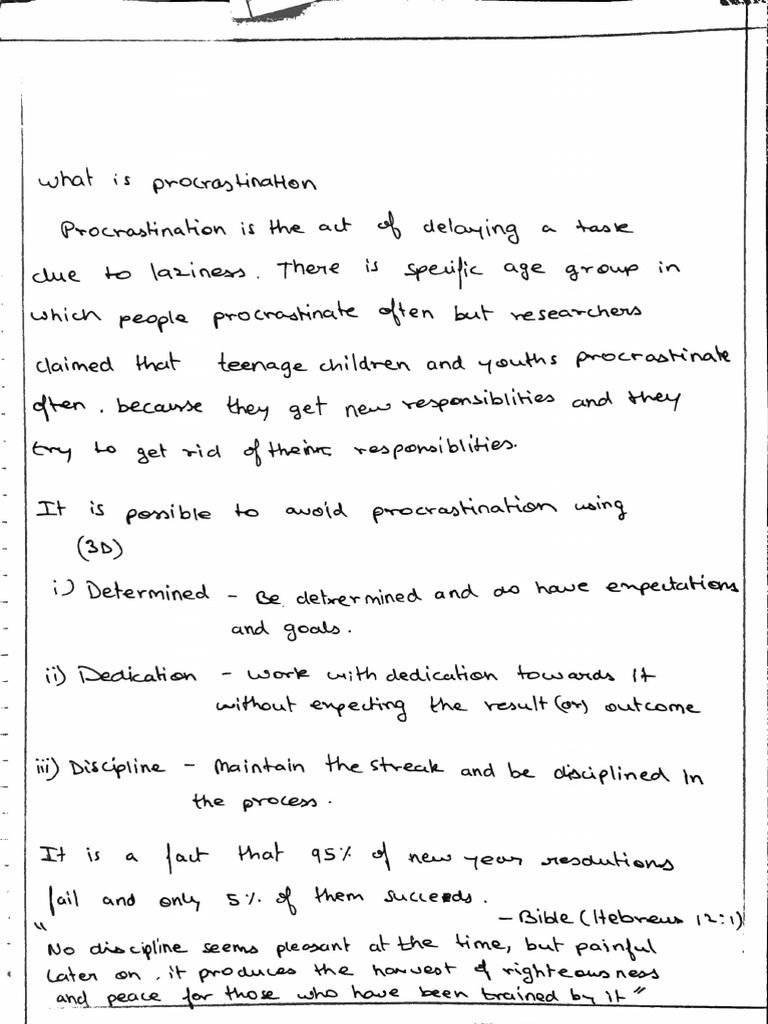 what is procrastination
Procrastination is the act of delaying a task
due to laziness. There is specific age group in
which people procrastinate often but researchers
claimed that teenage children and youths procrastinate
often. because they get new responsiblities and they
try to get rid of their responsiblities.
It is possible to avoid procrastination using
(3D)
i) Determined - Be determined and do have expectations
and goals.
ii) Dedication - work with dedication towards it
without expecting the result (or) outcome
iii) Discipline - Maintain the streak and be disciplined in
the process.
It is a fact that 95% of new year resolutions
fail and only 5% of them succeeds.
- Bible (Hebrews 12:1)
"No discipline seems pleasant at the time, but painful
later on, it produces the harvest of righteousness
and peace for those who have been trained by it"